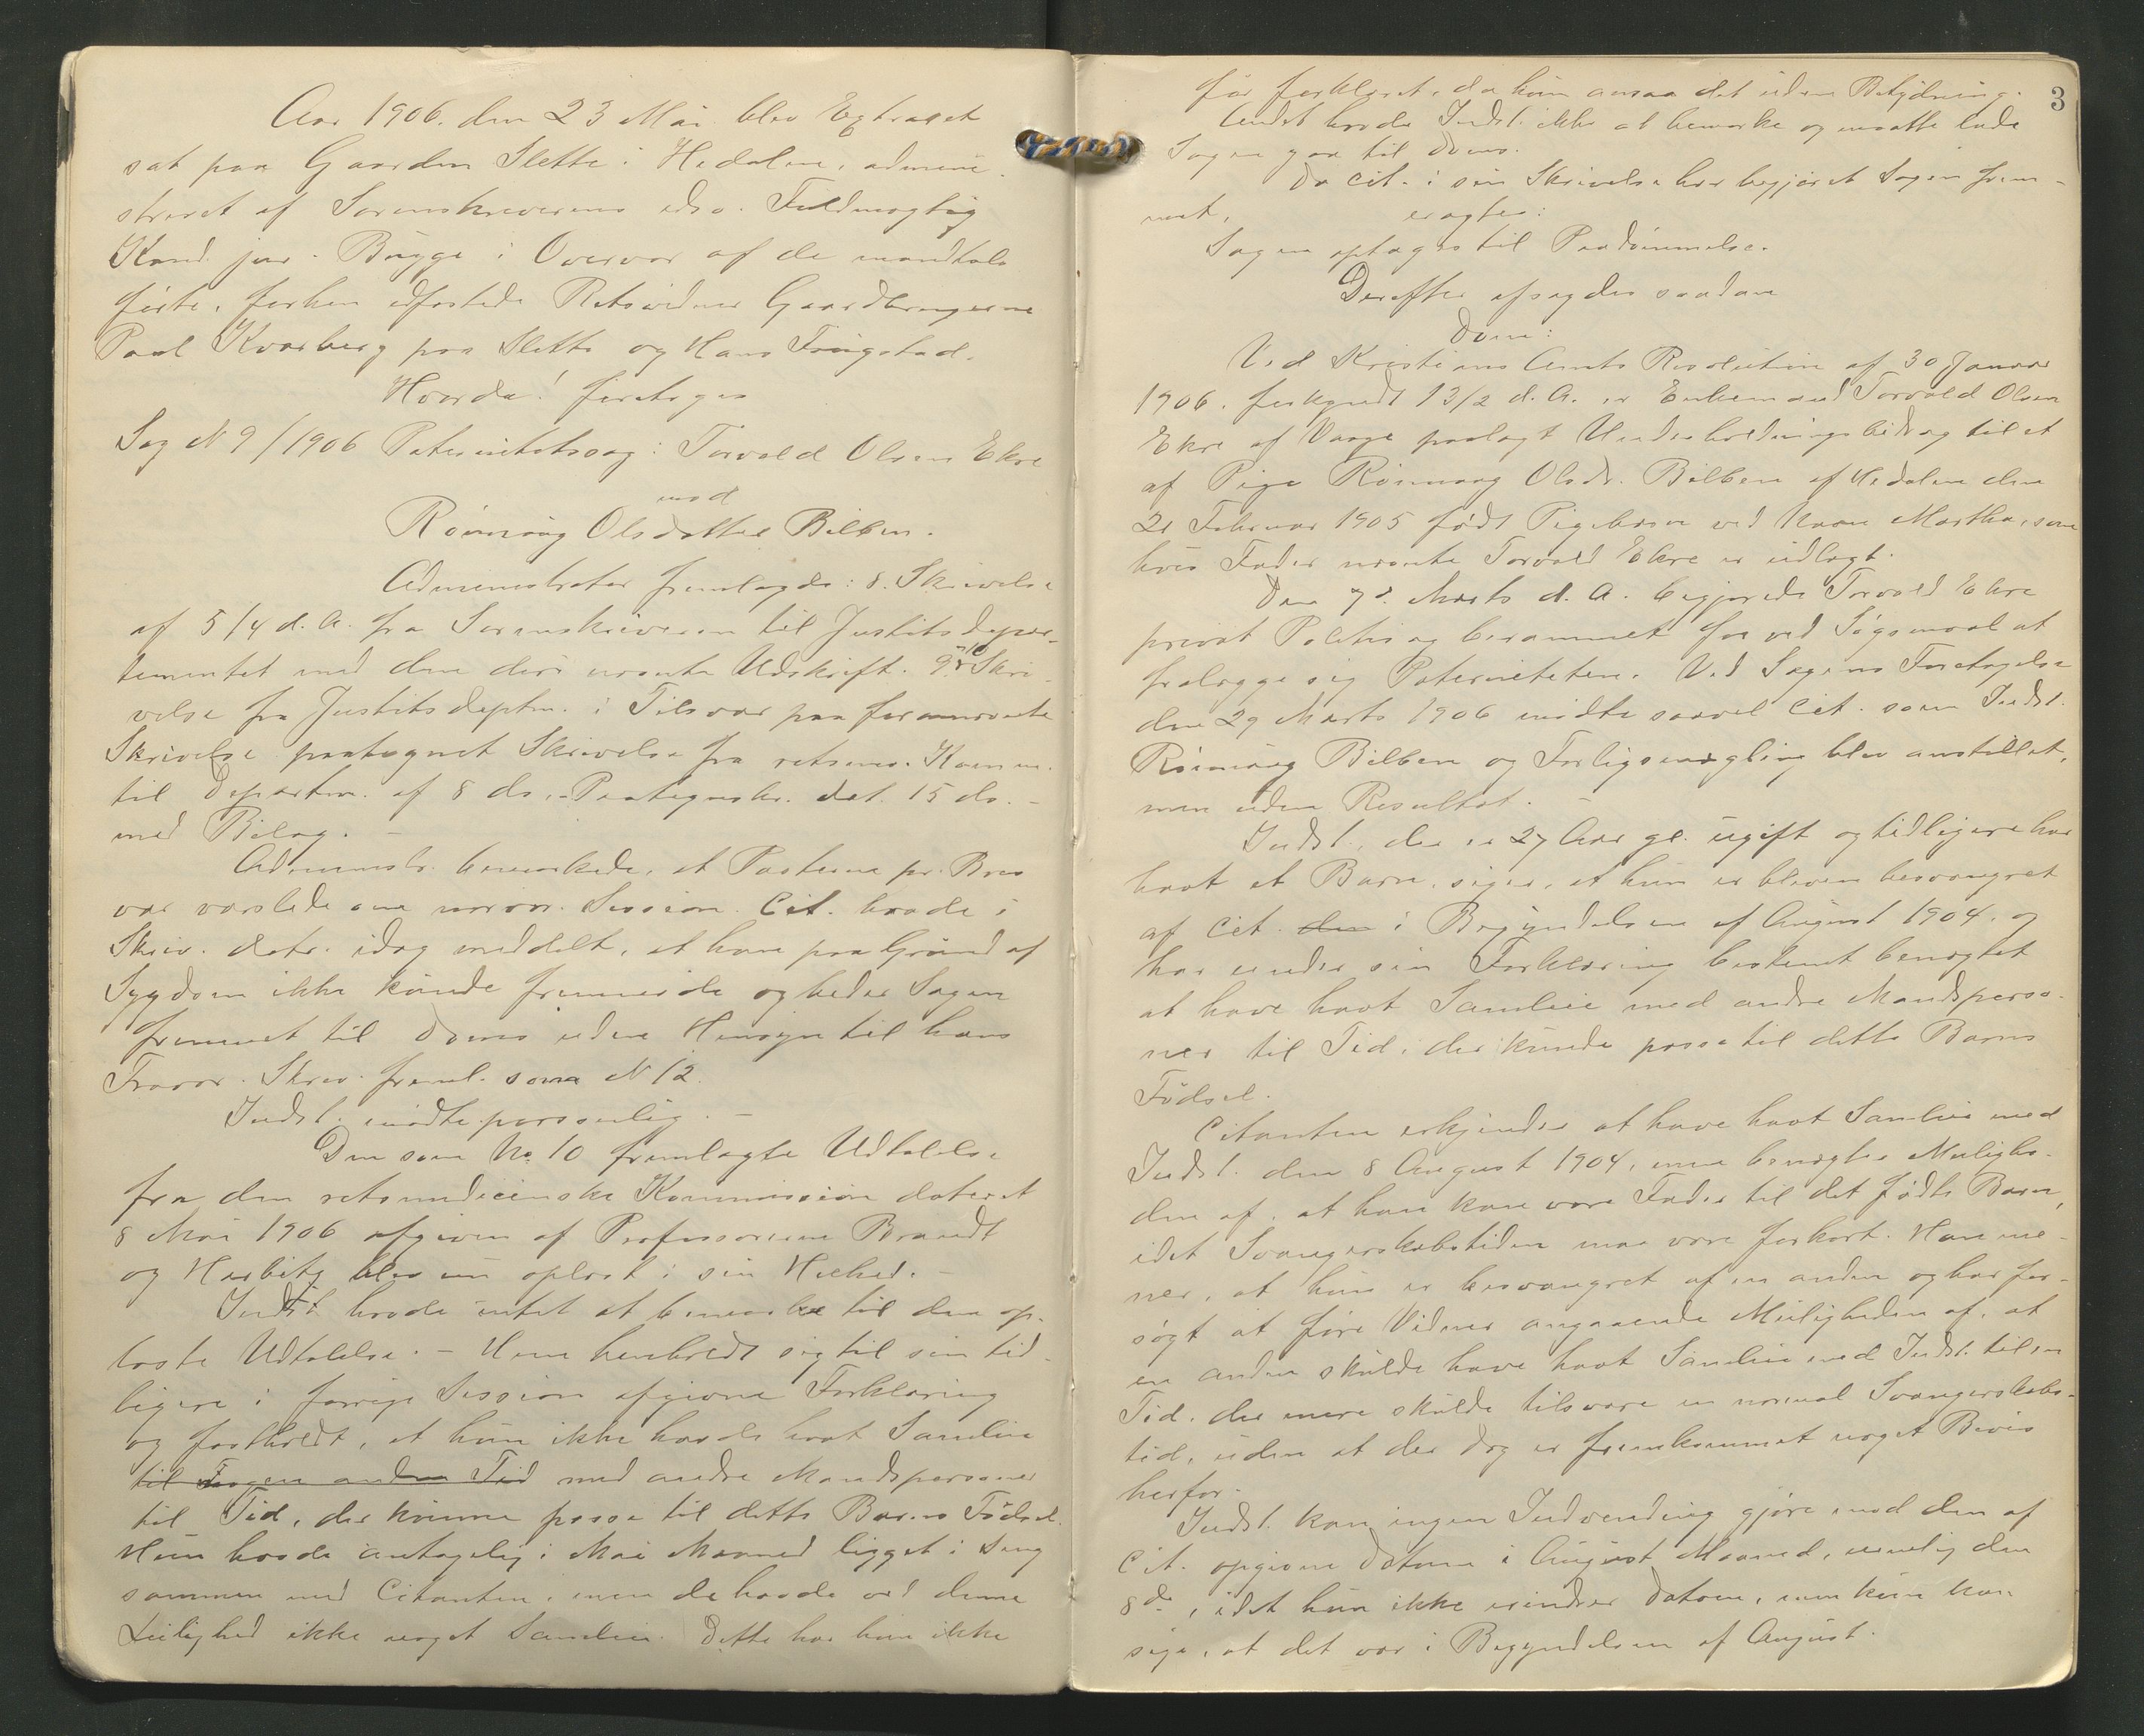 Aar 1906. den 23 Mai blev Extraret
sat paa Gaarden Slette i Hedalen, admini-
streret af Sorenskriverens edsv. Fuldmægtig
Kand. jur. Bugge i Overvær af de mandtals
førte, forhen edfæstede Retsvidner Gaardbrugerne
Paul Kvarberg paa Slette og Hans Tingstad.
Hvorda! foretoges
Sag N 9/1906 Paternitetssag: Torvald Olsen Ekre
mod
Rønnaug Olsdatter Bilben.
Administrator fremlagde: 8. Skrivelse
af 5/4 d. A. fra Sorenskriveren til Justitsdepar-
tementet med den deri nævnte Udskrift. 9. Skri-
velse fra Justitsdeptm. i Tilsvar paa forannævnte
Skrivelse paategnet Skrivelse fra retsmed. Komm.
til Departm. af 8 ds., Paategnskr. dat. 15 ds. -
med Bilag. -
Administr. bemærkede, at Parterne pr. Brev
var varslede om nærvær. Session. Cit. havde i
Skriv. datr. idag meddelt, at han paa Grund af
Sygdom ikke kunde fremmøde og beder Sagen
fremmet til Doms uden Hensyn til hans
Fravær. Skriv. freml. som N 12.
Indst. mødte personlig. -
Den som No 10 fremlagte Udtalelse
fra den retsmedicinske Kommission dateret
8 Mai 1906 afgiven af Professorerne Brandt
og Harbitz blev nu oplæst i sin Helhed. -
Indst. havde intet at bemærke til den op-
læste Udtalelse. - Hun henholdt sig til sin tid-
ligere i forrige Session afgivne Forklaring
og fastholdt, at hun ikke havde havt Samleie
til nogen anden Tid med andre Mandspersoner
til Tid, der kunne passe til dette Barns Fødsel.
Hun havde antagelig i Mai Maaned ligget i Seng
sammen med Citanten, men de havde ved denne
Leilighed ikke noget Samleie. Dette har hun ikke
3
før forklaret, da hun ansaa det uden Betydning.
Andet havde Indst. ikke at bemærke og maatte lade
Sagen gaa til Doms.
Da Cit. i sin Skrivelse har begjæret Sagen frem-
met,
eragtes:
Sagen optages til Paadømmelse.
Derefter afsagdes saadan
Dom:
Ved Kristians Amts Resolution af 30 Januar
1906, forkyndt 13/2 d. A. er Enkemand Torvald Olsen
Ekre af Vaage paalagt Underholdningsbidrag til et
af Pige Rønnaug Olsdr. Bilben af Hedalen den
21 Februar 1905 født Pigebarn ved Navn Martha, som
hvis Fader nævnte Torvald Ekre er udlagt.
Den 7de Marts d. A. begjærede Torvald Ekre
privat Politisag berammet for ved Søgsmaal at
fralægge sig Paterniteten. Ved Sagens Foretagelse
den 29 Marts 1906 mødte saavel Cit. som Indst.
Rønnaug Bilben og Forligsmægling blev anstillet,
men uden Resultat. -
Indst., der er 27 Aar gl. ugift og tidligere har
havt et Barn, siger, at hun er bleven besvangret
af Cit. den i Begyndelsen af August 1904, og
har under sin Forklaring bestemt benægtet
at have havt Samleie med andre Mandsperso-
ner til Tid, der kunde passe til dette Barns
Fødsel.
Citanten erkjender at have havt Samleie med
Indst. den 8 August 1904, men benægter Mulighe-
den af, at han kan være Fader til det fødte Barn,
idet Svangerskabstiden maa være forkort. Han me-
ner, at hun er besvangret af en anden og har for-
søgt at føre Vidner angaaende Muligheden af, at
en anden skulde have havt Samleie med Indst. til en
Tid, der mere skulde tilsvare en normal Svangerskabs-
tid, uden at der dog er fremkommet noget Bevis
herfor.
Indst. kan ingen Indvending gjøre mod den af
Cit. opgivne Datum i August Maaned, nemlig den
8de, idet hun ikke erindrer Datoen, men kun kan
sige, at det var i Begyndelsen af August.